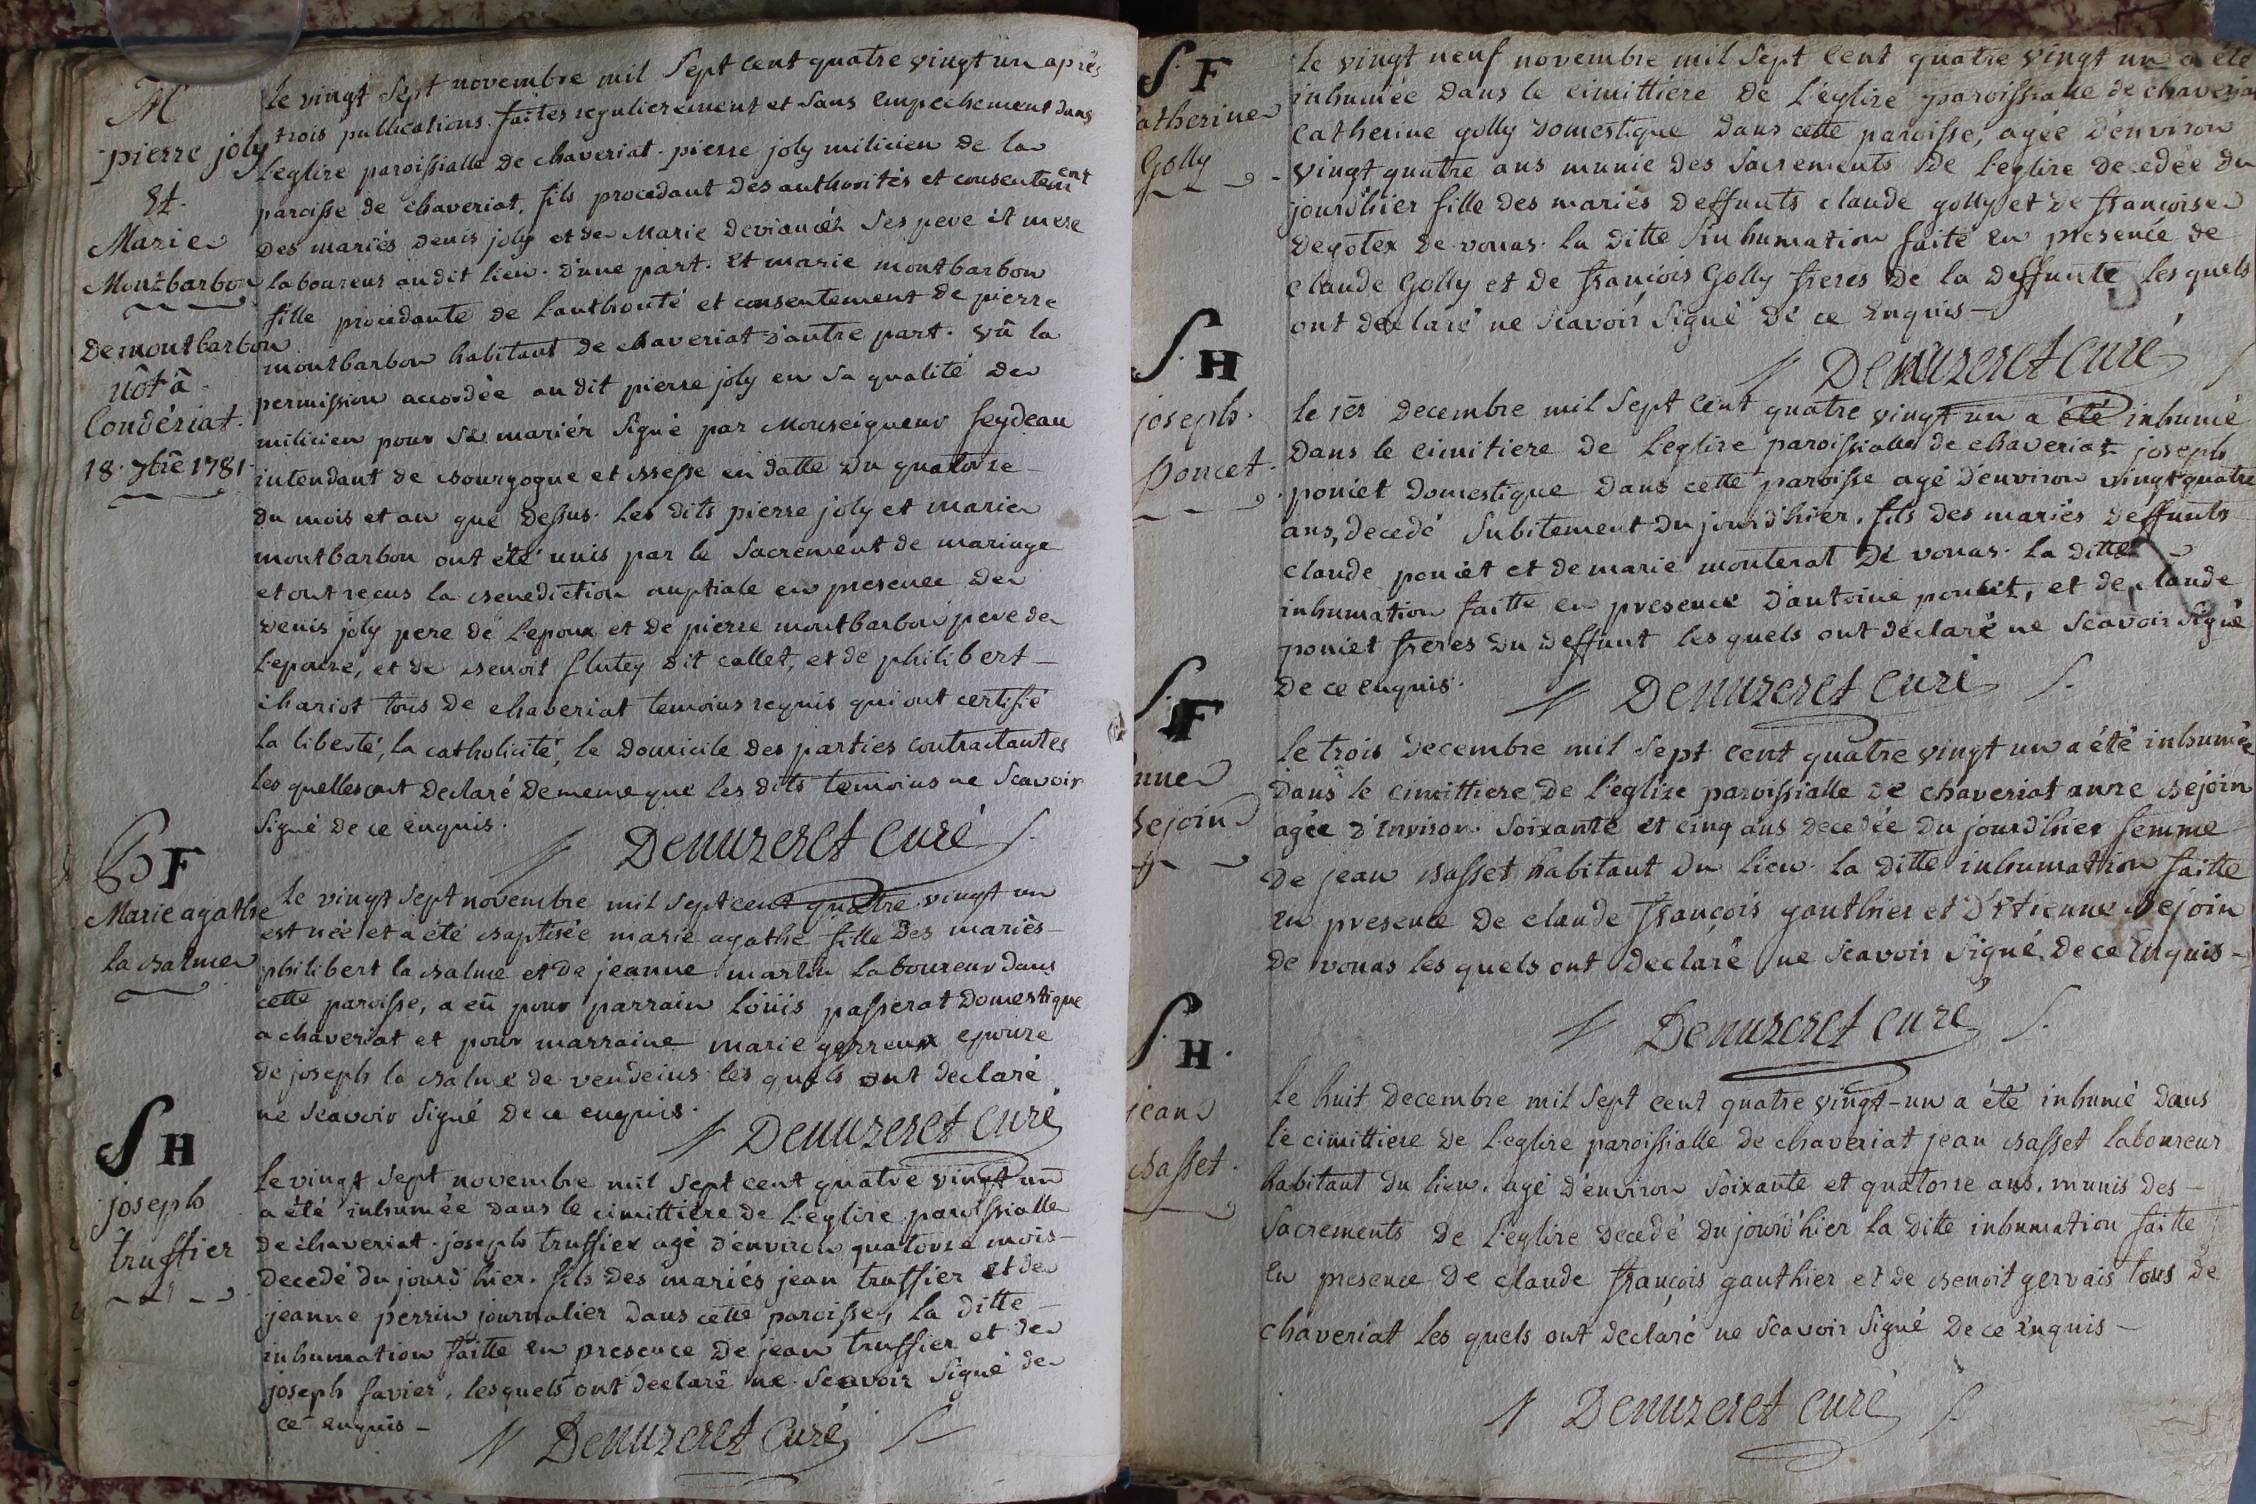 M
pierre joly
Et.
Marie
Montbarbon
Demontbarbon
nôt â
Condériat.
18. 7bre 1781
le vingt sept novembre mil sept cent quatre vingt un après
trois publications faites regulierement et sans empechement dans
l'eglise paroissialle de chaveriat. pierre joly milicien de la
paroisse de chaveriat, fils procedant des authorités et consentement
des mariés denis joly et de Marie ses pere et mere
laboureur audit lieu. d'une part. Et marie montbarbon
fille procedante de l'authorité et consentement de pierre
montbarbon habitant de chaveriat d'autre part. vû la
permission accordée audit pierre joly en sa qualité de
milicien pour se mariér signé par Monseigneur feydeau
intendant de Bourgogne et Bresse en datte du quatorze
du mois et an que dessus. Les dits pierre joly et marie
montbarbon ont été unis par le sacrement de mariage
et ont reçus la Benediction nuptiale en presence de
denis joly pere de l'epoux et de pierre montbarbon pere de
l'epouse, et de Benoit flutey dit collet, et de philibert
chariot tous de chaveriat temoins requis qui ont certifié
la liberté, la catholicité, le domicile des parties contractantes
les quelles ont declaré de meme que les dits temoins ne scavoir
signé de ce enquis.
Denuzeret curé
B F
Marie agathe
la Balme
le vingt sept novembre mil sept cent quatre vingt un
est née et a été Baptisée marie agathe fille des mariés
philibert la Balme et de jeanne martin laboureur dans
cette paroisse, a eû pour parrain loüis passerat domestique
a chaveriat et pour marraine marie gerreux epouse
de joseph la Balme de vendeins les quels ont declaré
ne scavoir signé de ce enquis.
Denuzeret curé
S H
joseph
truffier
le vingt sept novembre mil sept cent quatre vingt un
a été inhumée dans le cimittiere de l'eglise paroissialle
de chaveriat. joseph truffier agé d'environ quatorze mois
decedé du jourd'hier. fils des mariés jean truffier et de
jeanne perrin journalier dans cette paroisse, la ditte
inhumation faitte en presence de jean truffier et de
joseph favier, lesquels ont declaré ne scavoir signé de
ce enquis
Denuzeret curé
S. F
atherine
Golly
le vingt neuf novembre mil sept cent quatre vingt un a été
inhumée dans le cimittiere de l'église paroissialle de chaveriat
catherine golly domestique dans cette paroisse, agée d'environ
vingt quatre ans munie des sacrements de l'eglise decedée du
jourd'hier fille des mariés deffunts claude golly et de françoise
degotex de vonas. la ditte inhumation faite en presence de
claude Golly et de françois Golly freres de la deffunte les quels
ont declaré ne scavoir signé de ce enquis
Denuzeret curé
S. H
joseph.
poncet.
le 1er decembre mil sept cent quatre vingt un a été inhumé
dans le cimitiere de l'eglise paroissialle de chaveriat joseph
poncet domestique dans cette paroisse agé d'environ vingt quatre
ans, decedé subitement du jourd'hier, fils des mariés deffunts
claude poncet et de marie monterat de vonas. la ditte
inhumation faitte en presence d'antoine poncet, et de claude
poncet freres du deffunt les quels ont declaré ne scavoir signé
de ce enquis.
Denuzeret curé
S. F
nne
Bejoin
le trois decembre mil sept cent quatre vingt un a été inhumée
dans le cimittiere de l'église paroissialle de chaveriat anne Bejoin
agée d'environ. soixante et cinq ans decedée du jourd'hier femme
de jean Basset habitant du lieu. la ditte inhumation faitte
en presence de claude françois gauthier et d'étienne Bejoin
de vonas les quels ont declaré ne scavoir signé de ce enquis
Denuzeret curé
S. H.
jean
Basset.
le huit decembre mil sept cent quatre vingt-un a été inhumé dans
le cimittiere de l'eglise paroissialle de chaveriat jean Basset laboureur
habitant du lieu, agé d'environ soixante et quatorze ans. munis des
sacrements de l'eglise decedé du jourd'hier la ditte inhumation faitte
en presence de claude françois gauthier et de Benoit gervais tous de
chaveriat les quels ont declaré ne scavoir signé de ce enquis
Denuzeret curé